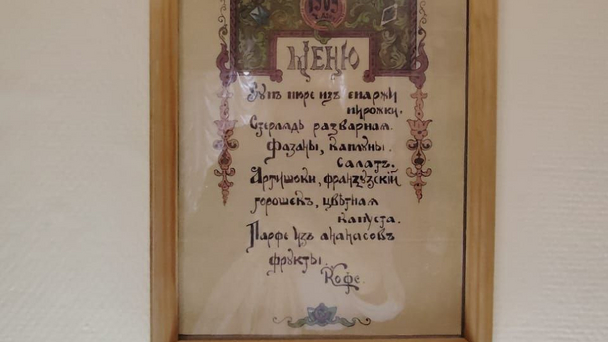 1909
МЕНЮ
Супъ пюре изъ спаржи
пирожки.
Стерлядь разварная.
Фазаны, каплуны.
Салатъ.
Артишоки, французскій
горошекъ, цвѣтная
капуста.
Парфе изъ ананасовъ
фрукты.
Кофе.